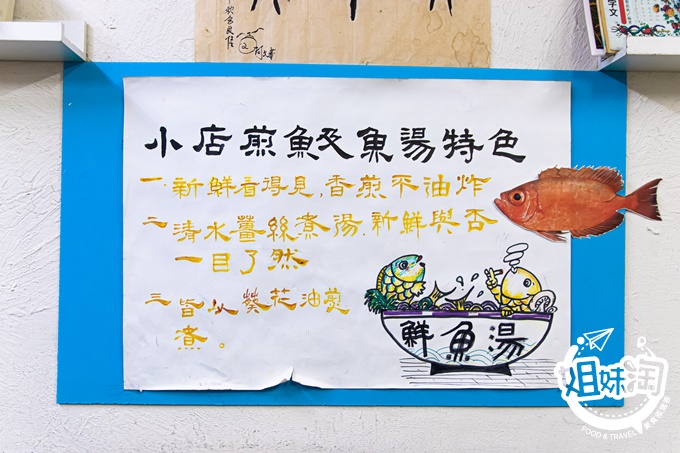 字文
小店煎魚及魚湯特色
一.新鮮看得見,香煎不油炸
二.清水薑絲煮湯.新鮮與否
一目了然
三.皆以葵花油煎
煮。
鮮魚湯
姐妹淘
FOOD & TRAVEL